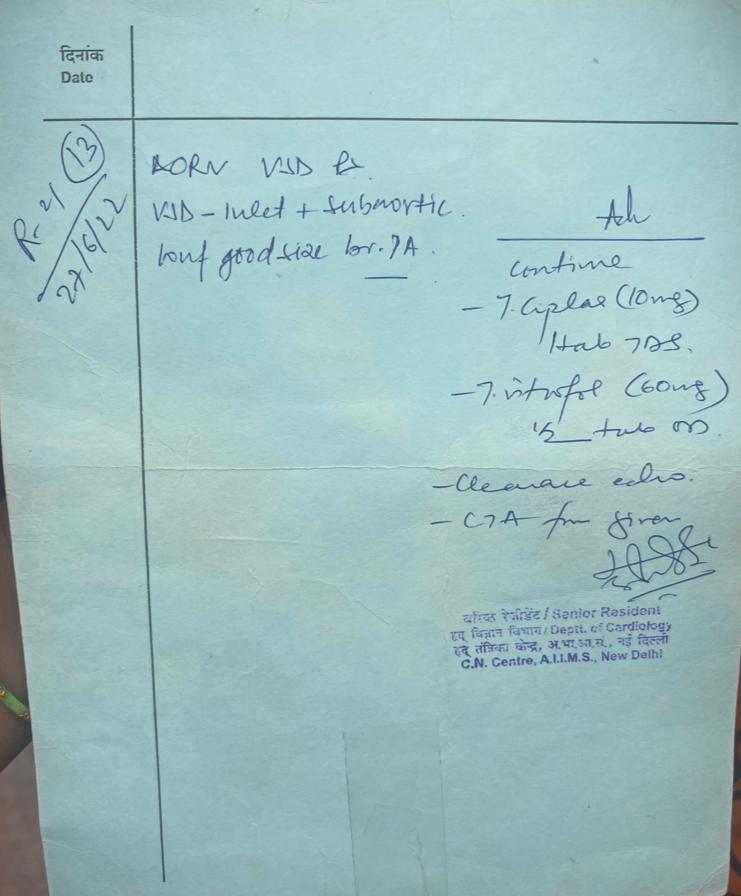 दिनांक
Date
13
27/6/22
DORV VSD PS
VSD - Inlet + Subaortic.
conf good size br. PA.
Adv
Continue
- T. Ciplar (10mg)
1 tab TDS.
- T. (60mg)
1/2 tab OD.
- Clearance echo.
- CTA form given
वरिष्ठ रेजीडेंट / Senior Resident
हृद् विज्ञान विभाग / Deptt. of Cardiology
हृद् तंत्रिका केन्द्र, अ.भा.आ.सं., नई दिल्ली
C.N. Centre, A.I.I.M.S., New Delhi